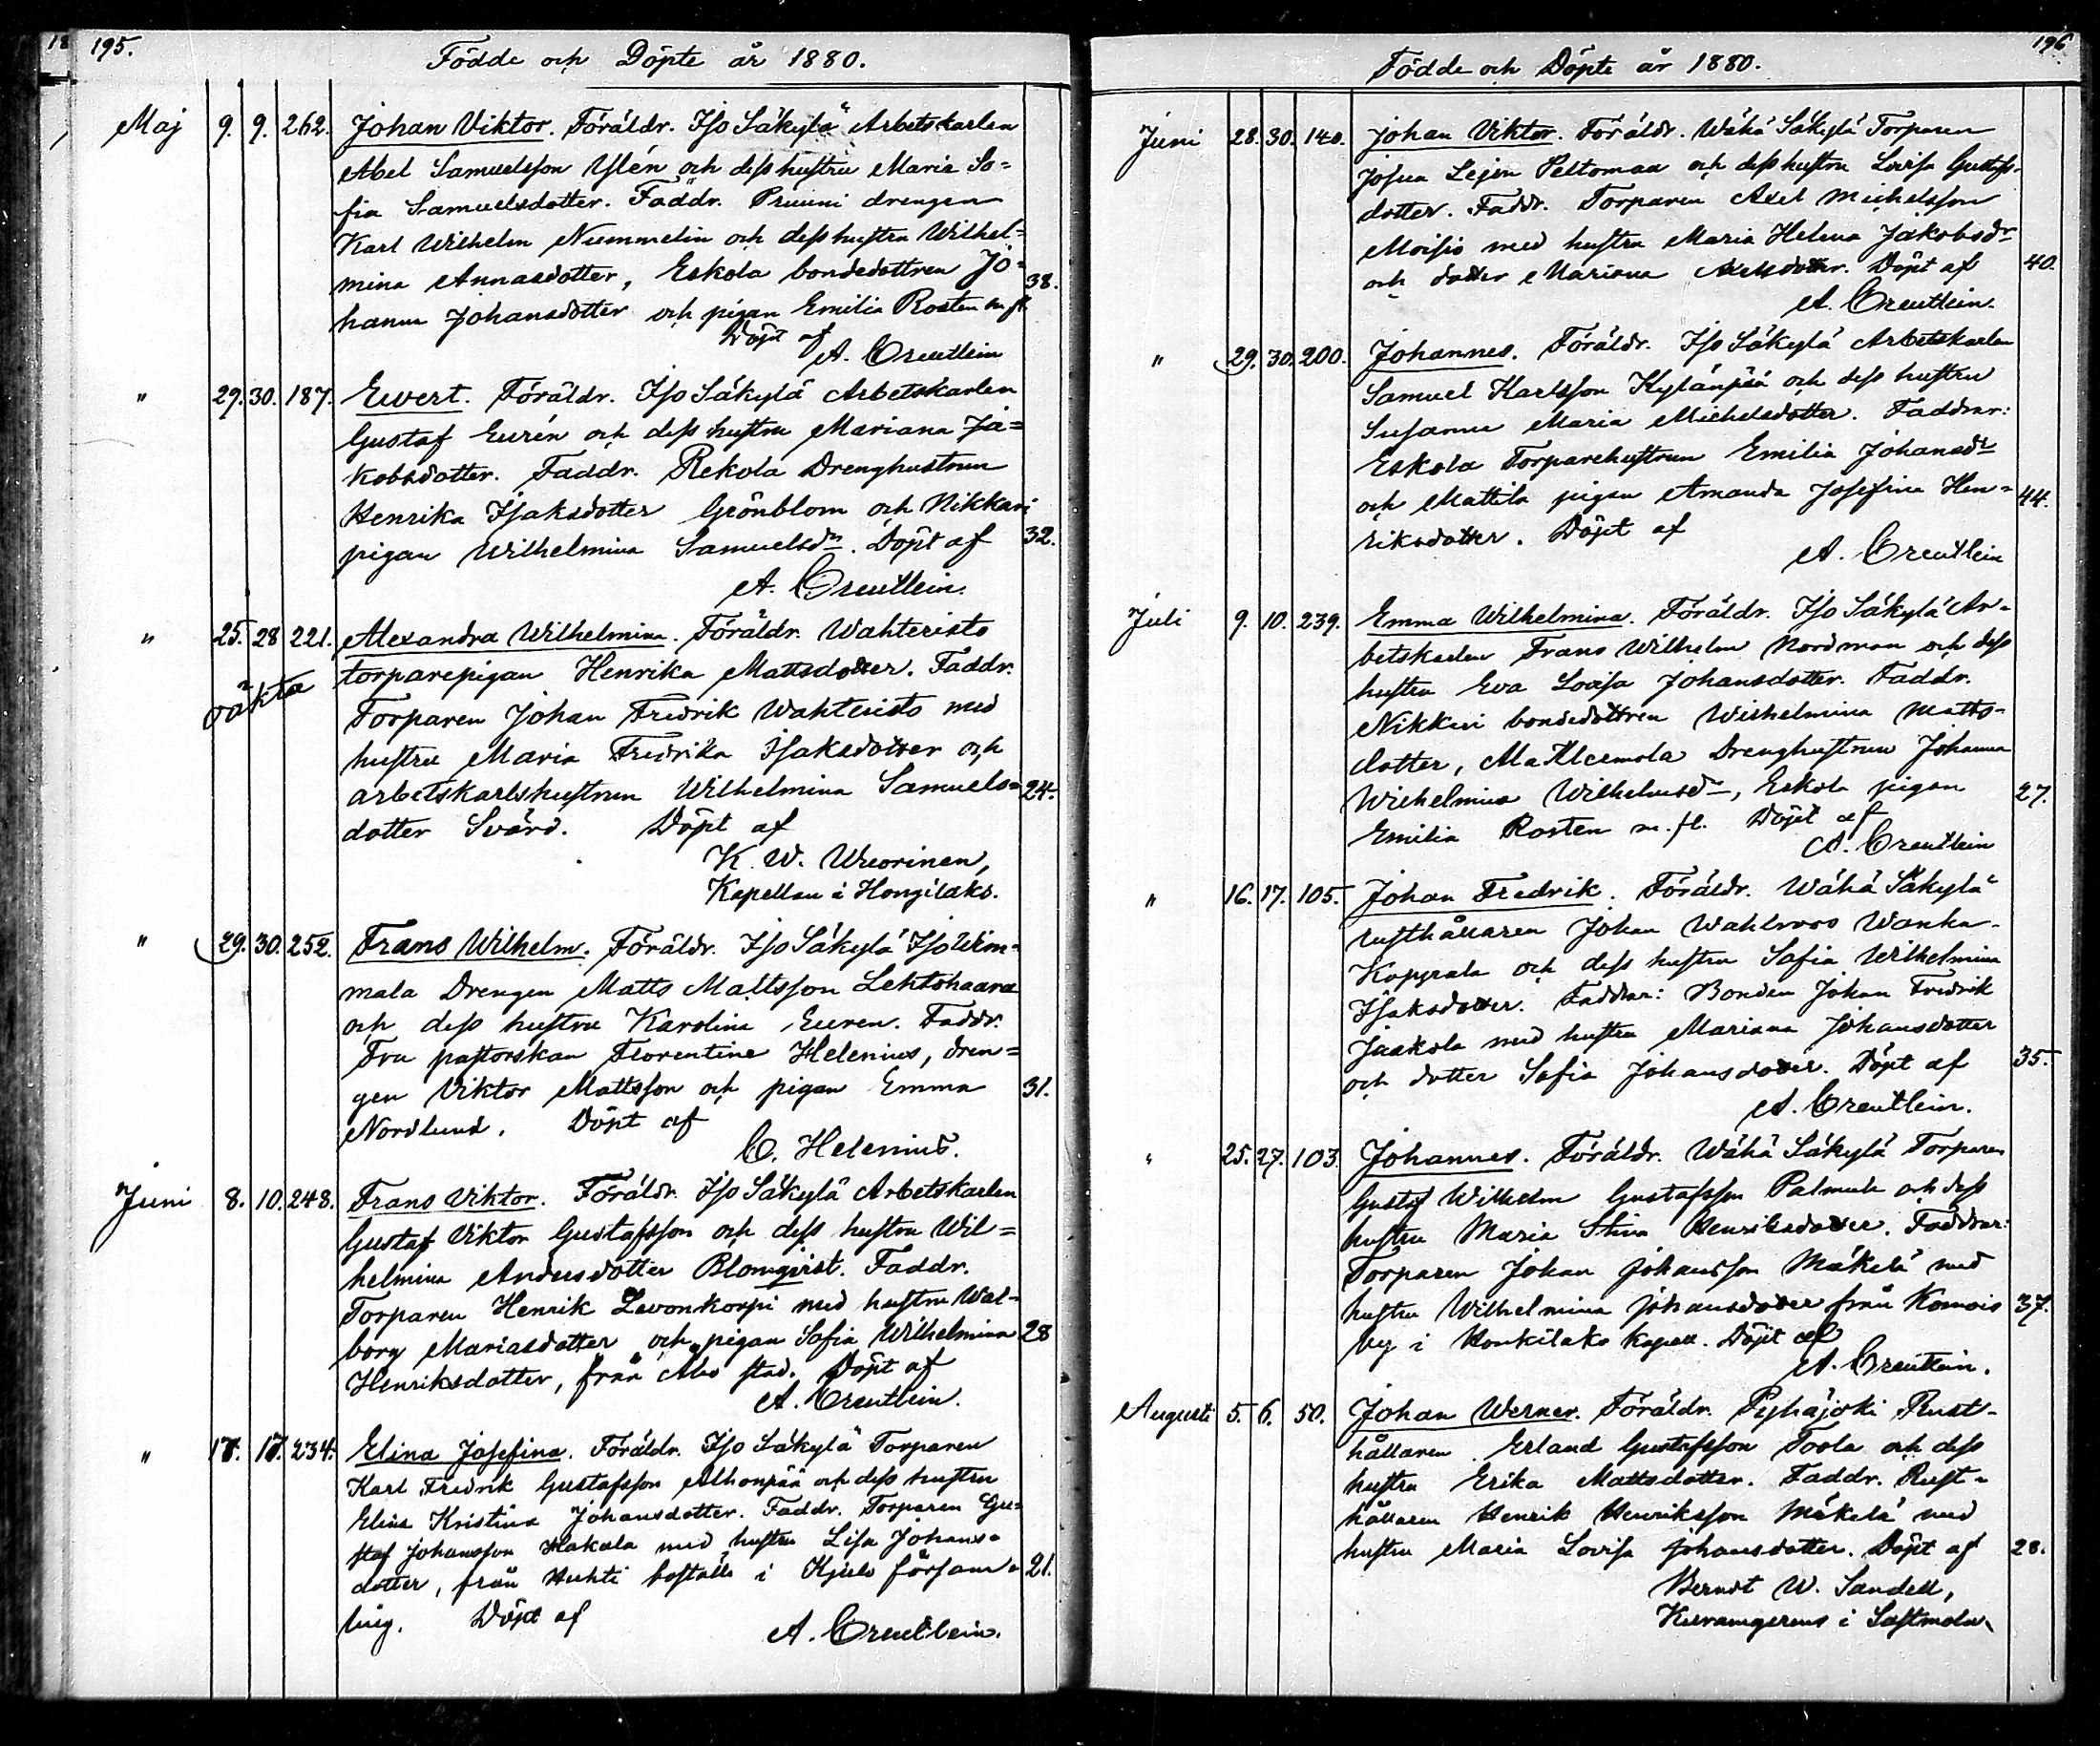 195.
Födde och Döpte år 1880.
Maj 9. 9. 262. Johan Viktor. Föräldr. Iso Säkylä Arbetskarlen
Abel Samuelsson Ylén och dess hustru Maria So=
fia Samuelsdotter. Faddr. Pruuni drengen
Karl Wilhelm Nummelin och dess hustru Wilhel=
mina Annasdotter, Eskola bondedottren Jo= 38.
hanna Johansdotter och pigan Emilia Rosten m. fl.
Döpt af
A. Creutlein
" 29. 30. 187. Ewert. Föräldr. Iso Säkylä Arbetskarlen
Gustaf Eurén och dess hustru Mariana Ja=
kobsdotter. Faddr. Rekola Drenghustrun
Henrika Isaksdotter Grönblom och Nikkari
pigan Wilhelmina Samuelsdr. Döpt af 32.
A. Creutlein.
" 25. 28 221. Alexandra Wilhelmina. Föräldr. Wahteristo
oäkta torparepigan Henrika Mattsdotter. Faddr.
Torparen Johan Fredrik Wahteristo med
hustru Maria Fredrika Isaksdotter och
arbetskarlshustrun Wilhelmina Samuels= 24.
dotter Svärd. Döpt af
K. W. Wuorinen,
Kapellan i Hongilaks.
" 29. 30. 252. Frans Wilhelm. Föräldr. Iso Säkylä Iso Wim=
mala Drengen Matts Mattsson Lehtohaara
och dess hustru Karolina Euren. Faddr.
Fru pastorskan Florentine Helenius, dren=
gen Viktor Mattsson och pigan Emma 31.
Nordlund. Döpt af
C. Helenius.
Juni 8. 10. 248. Frans Viktor. Föräldr. Iso Säkylä Arbetskarlen
Gustaf Viktor Gustafsson och dess hustru Wil=
helmina Andersdotter Blomqvist. Faddr.
Torparen Henrik Levonkorpi med hustru Wal=
borg Mariasdotter och pigan Sofia Wilhelmina 28
Henriksdotter, från Åbo stad. Döpt af
A. Creutlein.
" 17. 17. 234. Elina Josefina. Föräldr. Iso Säkylä Torparen
Karl Fredrik Gustafsson Alhonpää och dess hustru
Elina Kristina Johansdotter. Faddr. Torparen Gu=
staf Johansson Hakala med hustru Lisa Johans=
dotter, från Huhti boställe i Kjulo försam= 21.
ling. Döpt af
A. Creutlein.
196
Födde och Döpte år 1880.
Juni 28. 30. 140. Johan Viktor. Föräldr. Wähä Säkylä Torparen
Josua Peltomaa och dess hustru Lovisa Gustafs=
dotter. Faddr. Torparen Axel Michelsson
Moisio med hustru Maria Helena Jakobsdr
och dotter Mariana Axelsdotter. Döpt af 40.
A. Creutlein.
" 29. 30. 200. Johannes. Föräldr. Iso Säkylä Arbetskarlen
Samuel Karlsson Kylänpää och dess hustru
Susanna Maria Michelsdotter. Faddrar:
Eskola Torparehustrun Emilia Johansdr
och Mattila pigan Amanda Josefina Hen= 44.
riksdotter. Döpt af
A. Creutlein
Juli 9. 10. 239. Emma Wilhelmina. Föräldr. Iso Säkylä Ar=
betskarlen Frans Wilhelm Nordman och dess
hustru Eva Lovisa Johansdotter. Faddr.
Nikkari bondedottren Wilhelmina Matts=
dotter, Drenghustrun Johanna
Wilhelmina Wilhelmsdr, Eskola pigan 27.
Emilia Rosten m. fl. Döpt af
A. Creutlein
" 16. 17. 105. Johan Fredrik. Föräldr. Wähä Säkylä
rusthållaren Johan Wahlroos Wanha=
Kapyrala och dess hustru Sofia Wilhelmina
Isaksdotter. Faddrar: Bonden Johan Fredrik
Jaakola med hustru Mariana Johansdotter
och dotter Sofia Johansdotter. Döpt af 35.
A. Creutlein.
" 25. 27. 103. Johannes. Föräldr. Wähä Säkylä Torparen
Gustaf Wilhelm Gustafsson Palmula och dess
hustru Maria Stina Henriksdotter. Faddrar:
Torparen Johan Johansson Mäkelä med
hustru Wilhelmina Johansdotter från Komois 37.
by i Honkilaks kapell. Döpt af
A. Creutlein.
Augusti 5. 6. 50. Johan Werner. Föräldr. Pyhäjoki Rust=
hållaren Erland Gustafsson Toola och dess
hustru Erika Mattsdotter. Faddr. Rust=
hållaren Henrik Henriksson Mäkelä med
hustru Maria Lovisa Johansdotter. Döpt af 28.
Berndt W. Sandell,
i Sastmola.